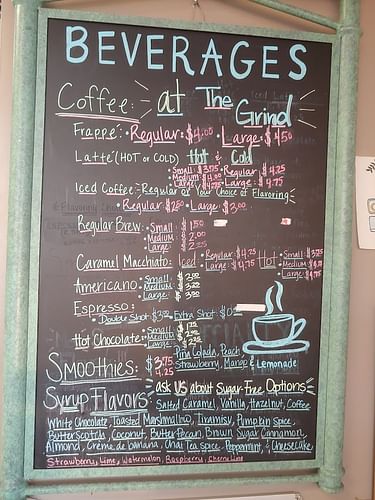 BEVERAGES
Coffee: at The Grind
Frappé: Regular: $4.00 · Large: $4.50
Latté (HOT or COLD) Hot & Cold
Small: $3.75 · Regular $4.25
Medium: $4.00 · Large: $4.75
Large:
Iced Coffee - Regular or Your Choice of Flavoring
· Regular: $2.50 · Large: $3.00
Regular Brew: · Small: 1.50
· Medium: 2.00
· Large: 2.25
Caramel Macchiato: Iced · Regular: $4.25 Hot · Small: $3.75
· Large: $4.75 · Medium: $4.25
· Large: $4.75
Americano · Small:
· Medium:
· Large:
Espresso:
· Double Shot · Extra Shot
Hot Chocolate: · Small:
· Medium:
· Large:
Smoothies: $3.75 Piña Colada, Peach,
4.25 Strawberry, Mango & Lemonade
Syrup Flavors: ask us about Sugar-Free Options
Salted Caramel, Vanilla, Hazelnut, Coffee
White Chocolate, Toasted Marshmallow, Tiramisu, Pumpkin Spice,
Butterscotch, Coconut, Butter Pecan, Brown Sugar Cinnamon,
Almond, Crème de banana, Chai Tea Spice, Peppermint, & Cheesecake,
Strawberry, Lime, Watermelon, Raspberry, Cherry Lime